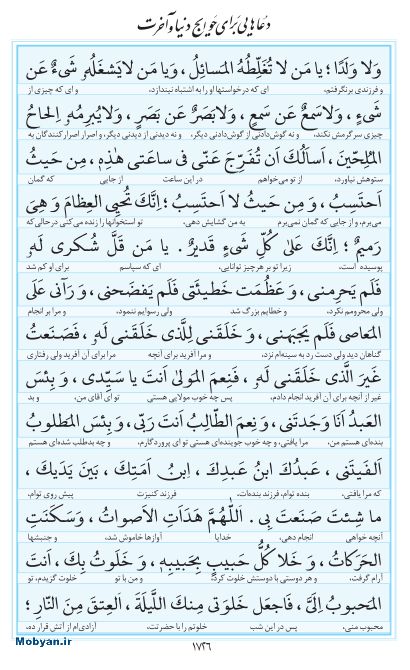 دعاهایی برای حوایج دنیا و آخرت
وَلا وَلَدًا؛ یا مَن لا تُغَلِّطُهُ المَسائِلُ، وَیا مَن لایَشغَلُهُ و شَیءٌ عَن
و فرزندی برنگرفتم، ای که درخواستها او را به اشتباه نیندازد، و ای که چیزی از
شَیءٍ، وَلاسَمعٌ عَن سَمعٍ، وَلابَصَرٌ عَن بَصَرٍ، وَلایُبرِمُهُ و اِلحاحُ
چیزی سرگرمش نکند، و نه گوش‌دادنی از گوش‌دادنی دیگر، و نه دیدنی از دیدنی دیگر، و اصرار اصرار کنندگان به
المُلِحّینَ، اَساَلُکَ اَن تُفَرِّجَ عَنّی فی ساعَتی هٰذِهٖ، مِن حَیثُ
ستوهش نیاورد، از تو می‌خواهم در این ساعت از جایی که گمان
اَحتَسِبُ، وَ مِن حَیثُ لا اَحتَسِبُ؛ اِنَّکَ تُحیِی العِظامَ وَ هِیَ
می‌برم، و از جایی که گمان نمی‌برم به من گشایش دهی، تو استخوانها را زنده می‌کنی در حالی‌که
رَمیمٌ؛ اِنَّکَ عَلیٰ کُلِّ شَیءٍ قَدیرٌ. یا مَن قَلَّ شُکری لَهُ و
پوسیده است، زیرا تو بر هر چیز توانایی، ای که سپاسم برای او کم شد
فَلَم یَحرِمنی، وَ عَظُمَت خَطیئَتی فَلَم یَفضَحنی، وَ رَآنی عَلَی
ولی محرومم نکرد، و خطایم بزرگ شد ولی رسوایم ننمود، و مرا بر انجام
المَعاصی فَلَم یَجبَهنی، وَ خَلَقَنی لِلَّذی خَلَقَنی لَهُ و، فَصَنَعتُ
گناهان دید ولی دست رد به سینه‌ام نزد، و مرا آفرید برای آنچه مرا برای آن آفرید ولی رفتاری
غَیرَ الَّذی خَلَقَنی لَهُ و، فَنِعمَ المَولیٰ اَنتَ یا سَیِّدی، وَ بِئسَ
غیر از آنچه برای آن آفرید انجام دادم، پس چه خوب مولایی هستی تو ای آقای من، و بد
العَبدُ اَنَا وَجَدتَنی، وَ نِعمَ الطّالِبُ اَنتَ رَبّی، وَ بِئسَ المَطلوبُ
بنده‌ای هستم من، مرا یافتی، و چه خوب جوینده‌ای هستی تو ای پروردگارم، و چه بد طلب شده‌ای هستم
اَلفَیتَنی، عَبدُکَ ابنُ عَبدِکَ، ابنُ اَمَتِکَ، بَینَ یَدَیکَ،
که مرا یافتی، بنده توام، فرزند بنده‌ات، فرزند کنیزت پیش روی توام،
ما شِئتَ صَنَعتَ بی. اَللّٰهُمَّ هَدَاَتِ الاَصواتُ، وَ سَکَنَتِ
آنچه خواهی انجام دهی، خدایا آوازها خاموش شد، و جنبشها
الحَرَکاتُ، وَ خَلا کُلُّ حَبیبٍ بِحَبیبِهٖ، وَ خَلَوتُ بِکَ، اَنتَ
آرام گرفت، و هر دوستی با دوستش خلوت کرد، و من با تو خلوت گزیدم، تو
المَحبوبُ اِلَیَّ، فَاجعَل خَلوَتی مِنکَ اللَّیلَةَ، العِتقَ مِنَ النّارِ؛
محبوب منی، پس در این شب خلوتم را با حضرتت، آزادی‌ام از آتش قرار ده.
۱۷۲۶
Mobyan.ir